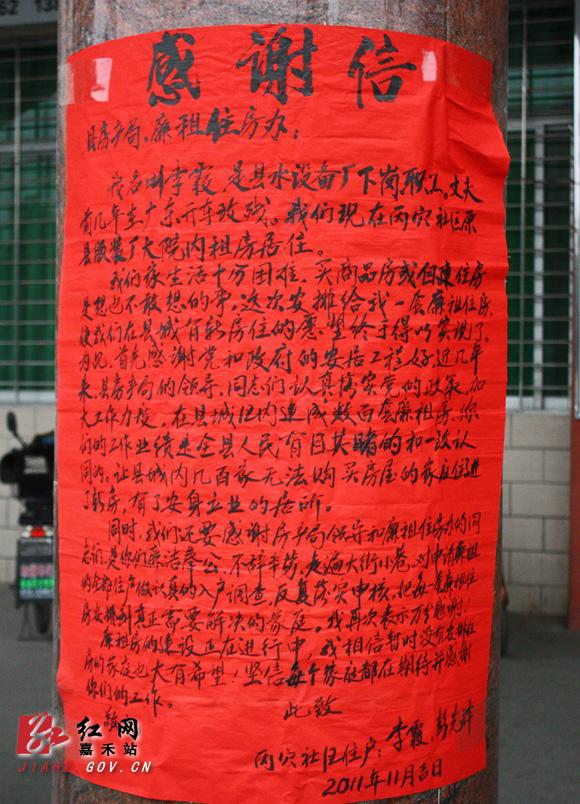 感谢信
县房产局、廉租住房办：
我名叫李霞，是县水设备厂下岗职工。丈夫
前几年在广东开车致残。我们现在丙穴社区原
县服装厂大院内租房居住。
我们家生活十分困难，买商品房或自建住房
是想也不敢想的事，这次安排给我一套廉租住房，
使我们在县城有新房住的愿望终于得以实现了。
为此，首先感谢党和政府的安居工程好，近几年
来，县房产局的领导、同志们认真落实党的政策，加
大工作力度，在县城区内建成数百套廉租房，你
们的工作业绩是全县人民有目共睹的和一致认
同的。让县城内几百家无法购买房屋的家庭住进
了新房，有了安身立业的居所。
同时，我们还要感谢房产局领导和廉租住房办的同
志们，是你们廉洁奉公，不辞辛劳，走遍大街小巷，对申请廉租
的全部住户做认真的入户调查，反复落实审核，把每一套廉租住
房安排到真正需要解决的家庭。我再次表示万分感谢！
廉租房的建设正在进行中，我相信暂时没有安排住
房的家庭也大有希望！坚信每个家庭都在期待并感谢
你们的工作。
此致
敬
丙穴社区住户：李霞、彭先
2011年11月吉日
红网
嘉禾站
JIAHE.GOV.CN